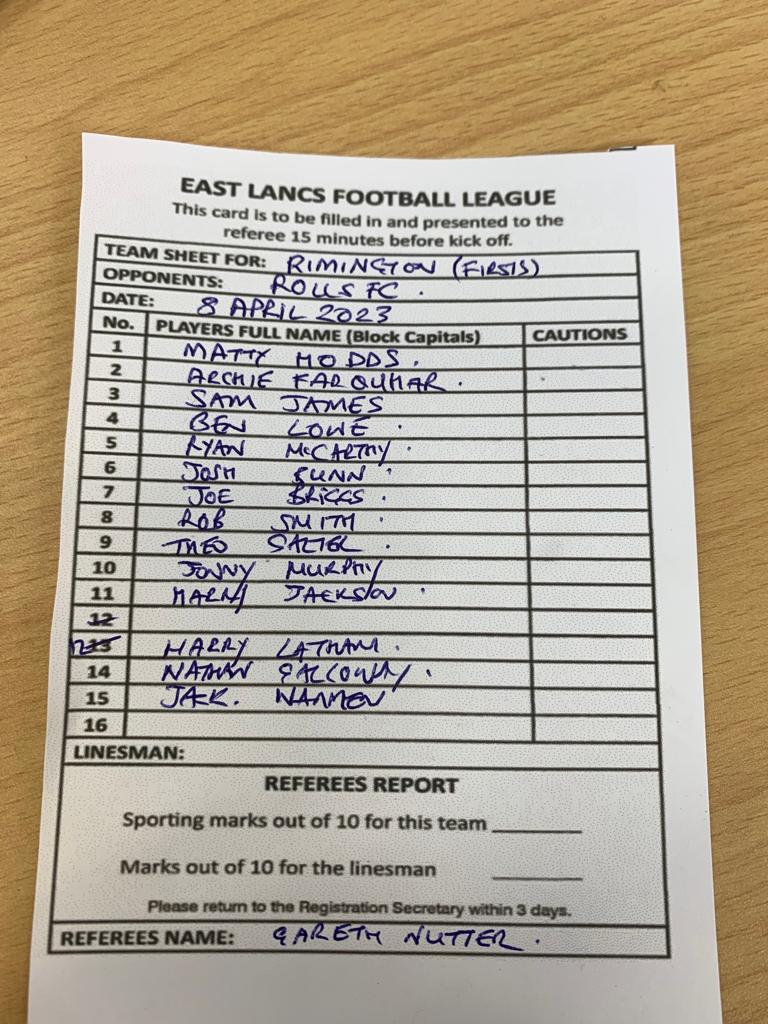 EAST LANCS FOOTBALL LEAGUE
This card is to be filled in and presented to the
referee 15 minutes before kick off.
TEAM SHEET FOR: RIMINGTON (FIRSTS)
OPPONENTS: ROLLS FC.
DATE: 8 APRIL 2023
No. PLAYERS FULL NAME (Block Capitals) CAUTIONS
1 MATTY HODDS.
2 ARCHIE FARQUHAR.
3 SAM JAMES
4 BEN LOWE.
5 RYAN McCARTHY.
6 JOSH
7 JOE BRIGGS.
8 ROB SMITH.
9 THEO
10 JONNY MURPHY
11 HARRY JACKSON.
12
12 HARRY LATHAM.
14 NATHAN GALLOWAY.
15 JACK.
16
LINESMAN:
REFEREES REPORT
Sporting marks out of 10 for this team
Marks out of 10 for the linesman
Please return to the Registration Secretary within 3 days.
REFEREES NAME: GARETH NUTTER.